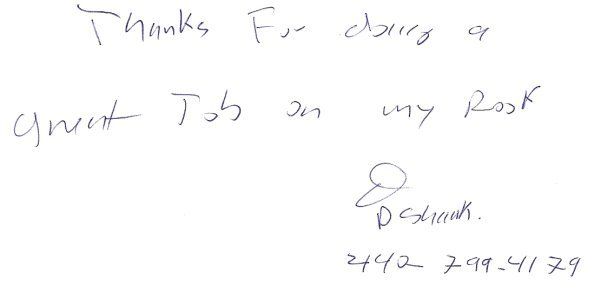 Thanks For doing a
great Job on my Roof
D Shank.
2442 799-4179